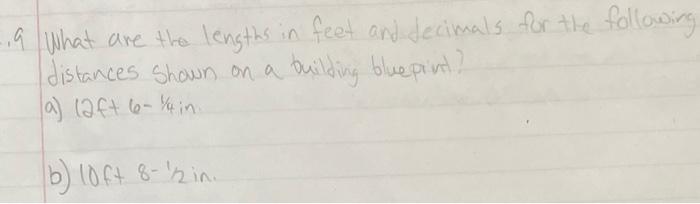 .9 What are the lengths in feet and decimals for the following
distances shown on a building blueprint?
a) 12ft 6-1/4in.
b) 10ft 8-1/2in.